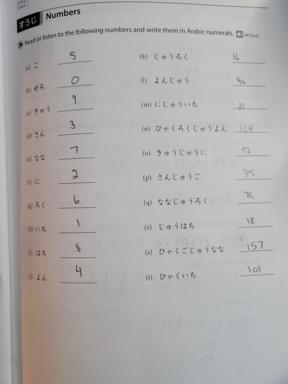 すうじ Numbers
Read or listen to the following numbers and write them in Arabic numerals.
(a) ご 5
(b) ぜろ 0
(c) きゅう 9
(d) さん 3
(e) なな 7
(f) に 2
(g) ろく 6
(h) いち 1
(i) はち 8
(j) よん 4
(k) じゅうろく 16
(l) よんじゅう 40
(m) にじゅういち 21
(n) ひゃくろくじゅうよん 164
(o) きゅうじゅうに 92
(p) さんじゅうご 35
(q) ななじゅうろく 76
(r) じゅうはち 18
(s) ひゃくごじゅうなな 157
(t) ひゃくいち 101